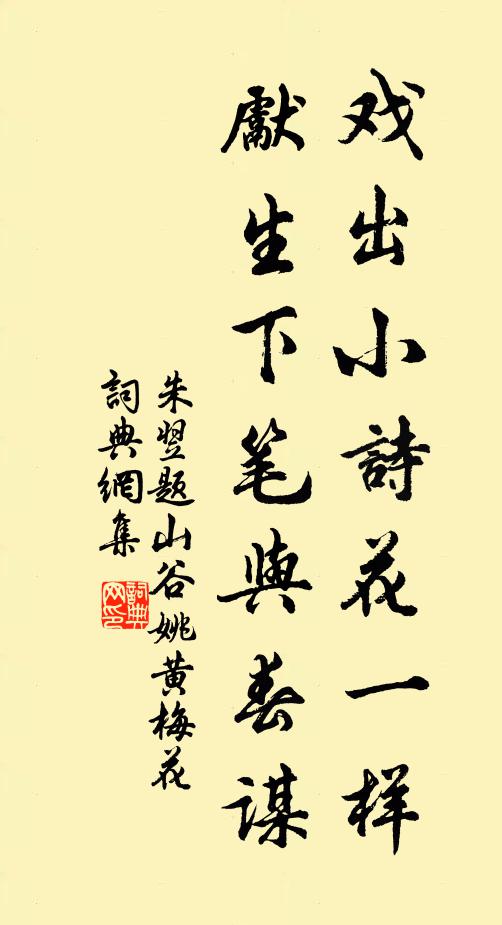 戏出小詩花一样
獻生下笔與春谋
朱翌题山谷姚黄梅花
詞典網集
詞典网印